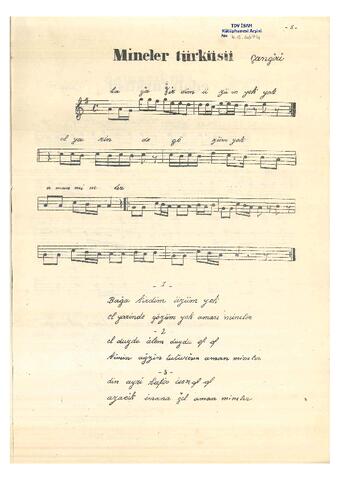 TDV İSAM
Kütüphanesi Arşivi
No
- 5 -
Mineler türküsü
Çangiri
ba ğa gir dim ü zü m yok yok
el ya rin de gö züm yok
a man mi ne ler
- 1 -
Bağa Girdim üzüm yok
el yarinde gözüm yok aman mineler
- 2 -
el duyda âlem duydu of of
Kimin ağzın aman mineler
- 3 -
din ayri of of
azacik insana gel aman mineler